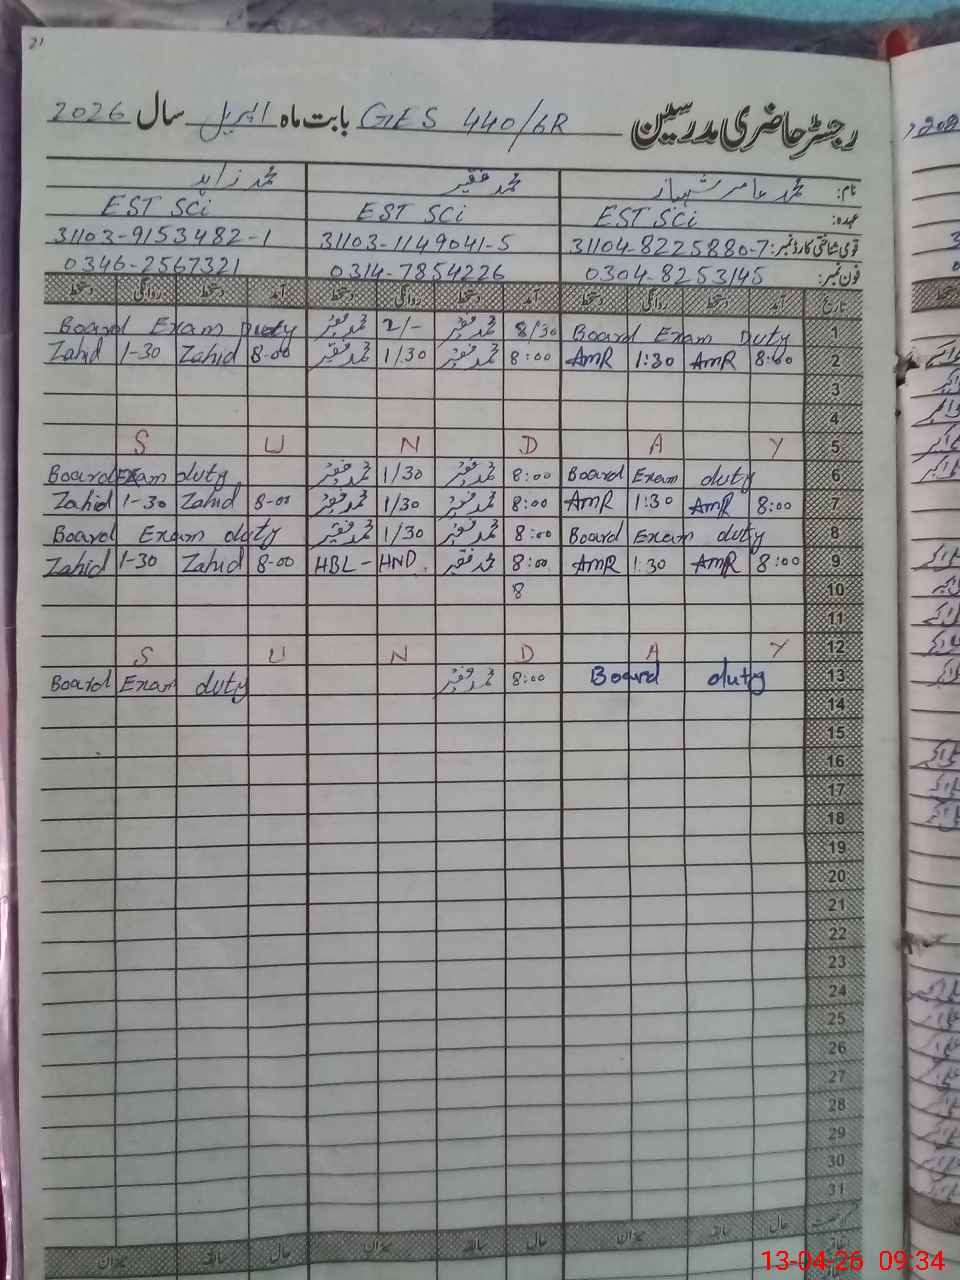 21
رجسٹر حاضری مدرسین GES 440/6R بابت ماہ اپریل سال 2026
نام: محمد عامر شہباز محمد فقیر محمد زاہد
عہدہ: EST SCi EST SCi EST SCi
قومی شناختی کارڈ نمبر: 31104-8225880-7 31103-1149041-5 31103-9153482-1
فون نمبر: 0304-8253145 0314-7854226 0346-2567321
تاریخ آمد دستخط روانگی دستخط آمد دستخط روانگی دستخط آمد دستخط روانگی دستخط
1 Board Exam Duty 8/30 محمد فقیر 2/- محمد فقیر Board Exam Duty
2 8:00 AMR 1:30 AMR 8:00 محمد فقیر 1/30 محمد فقیر 8-00 Zahid 1-30 Zahid
3
4
5 S U N D A Y
6 Board Exam duty 8:00 محمد فقیر 1/30 محمد فقیر Board Exam duty
7 8:00 AMR 1:30 AMR 8:00 محمد فقیر 1/30 محمد فقیر 8-00 Zahid 1-30 Zahid
8 Board Exam duty 8:00 محمد فقیر 1/30 محمد فقیر Board Exam duty
9 8:00 AMR 1:30 AMR 8:00 محمد فقیر HBL - HND 8-00 Zahid 1-30 Zahid
10 8
11
12 S U N D A Y
13 Board duty 8:00 محمد فقیر Board Exam duty
14
15
16
17
18
19
20
21
22
23
24
25
26
27
28
29
30
31
حال سابقہ میزان حال سابقہ میزان حال سابقہ میزان
13-04-26 09:34